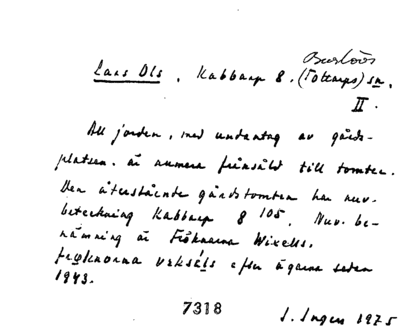 Burlövs
Lars Ols, Kabbarp 8. (Tottarps) sn.
II.
All jorden, med undantag av gårds-
platsen, är numera frånsåld till tomter.
Den återstående gårdstomten har nuv.
beteckning Kabbarp 8 105. Nuv. be-
nämning är Fröknarna Wixells.
frøknorna veksels efter ägarna sedan
1943.
7318
S. Ingers 1975